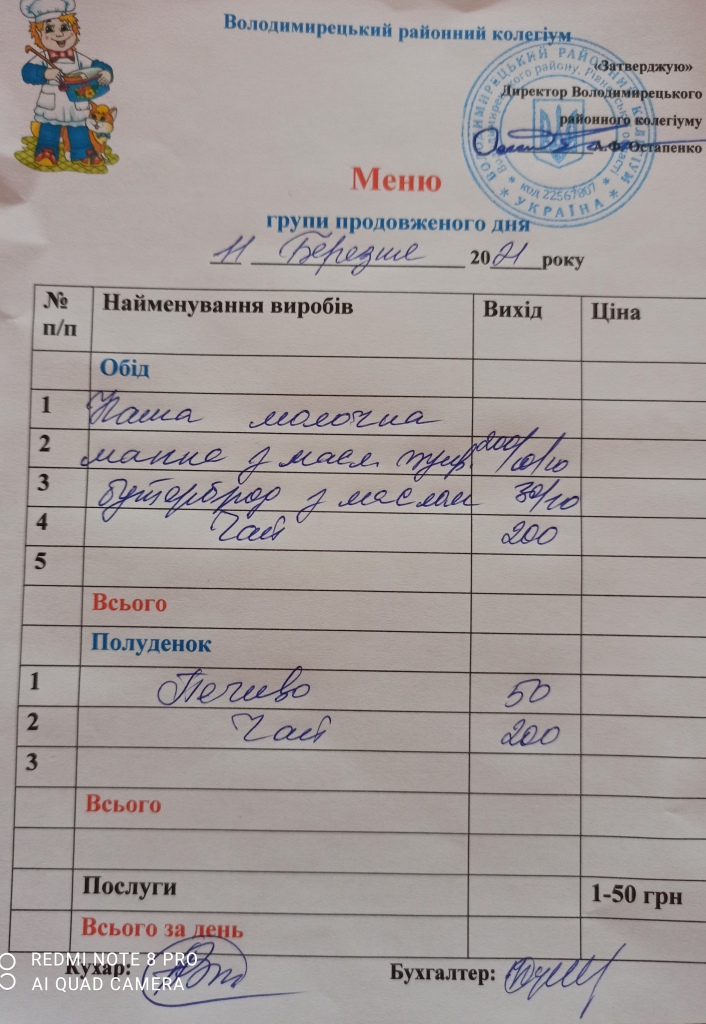 Володимирецький районний колегіум
«Затверджую»
Директор Володимирецького
районного колегіуму
А.Ф.Остапенко
ВОЛОДИМИРЕЦЬКИЙ РАЙОННИЙ КОЛЕГІУМ * УКРАЇНА *
* код 22567807 *
Меню
групи продовженого дня
11 Березня 2021 року
№ п/п Найменування виробів Вихід Ціна
Обід
1 Каша молочна
2 манна з масл. 200/10/10
3 бутерброд з маслом 30/10
4 Чай 200
5
Всього
Полуденок
1 Печиво 50
2 Чай 200
3
Всього
Послуги 1-50 грн
Всього за день
Кухар: Бухгалтер:
REDMI NOTE 8 PRO
AI QUAD CAMERA